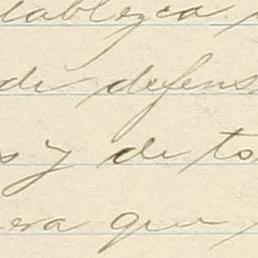 tablezca
de defens
s y de to
era que